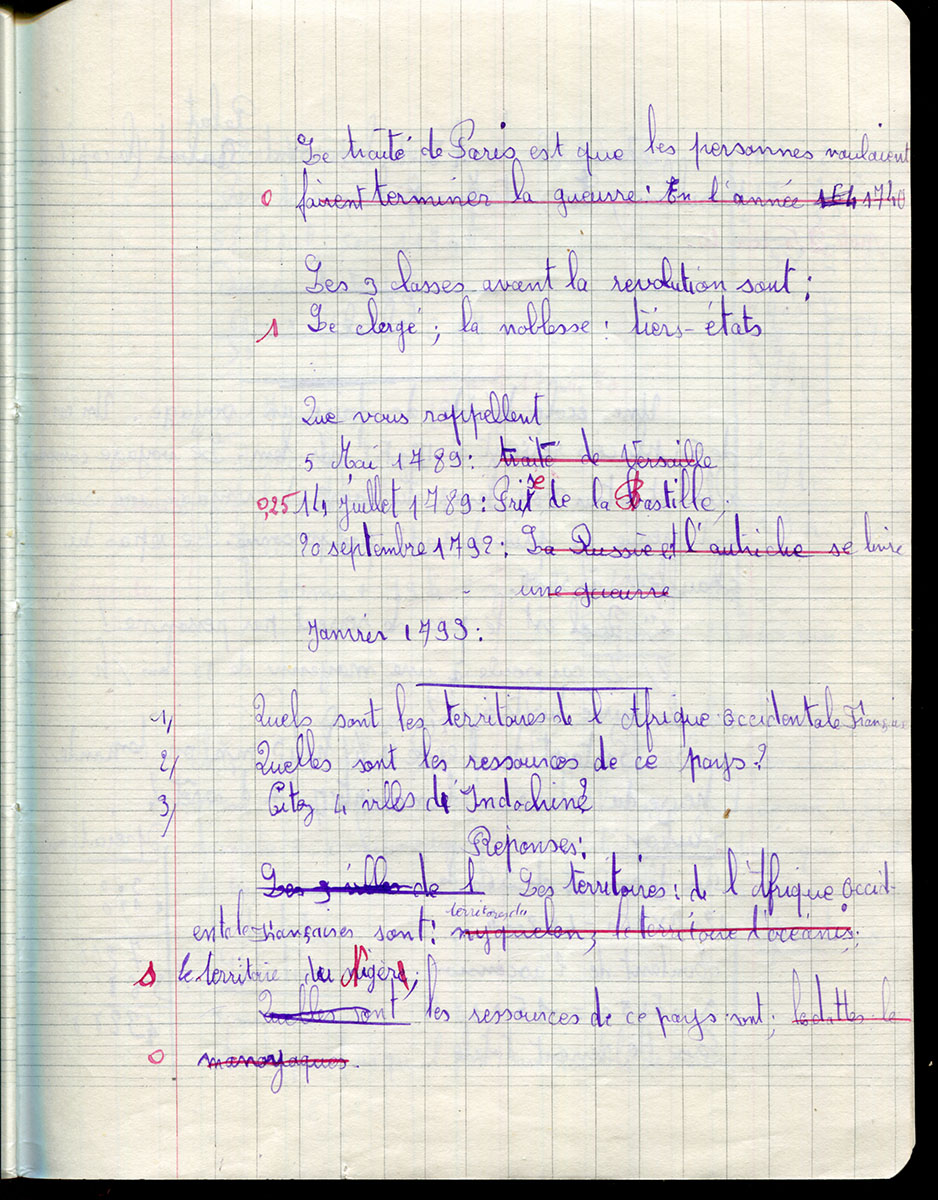 Le traité de Paris est que les personnes voulaient
0 fairent terminer la gueurre : En l'année 1740
Les 3 classes avant la revolution sont ;
1 Le clergé ; la noblesse : tiérs-états
Que vous rappellent
5 Mai 1789 : traité de Versaille
0,25 14 Juillet 1789 : Prise de la Bastille ;
20 septembre 1792 : La Russie et l'autriche se livre
une gueurre
Janvier 1793 :
1/ Quels sont les territoires de l'Afrique occidentale Française
2/ Quelles sont les ressources de ce pays ?
3/ Citez 4 villes d'Indochine ?
Réponses :
Les 3 villes de l Les territoires : de l'Afrique Occid-
territoires du
entale Françaises sont : myquelon, le territoire d'océanis ;
1 le territoire du Nigèr ;
Quelles sont les ressources de ce pays sont ; les dattes le
0